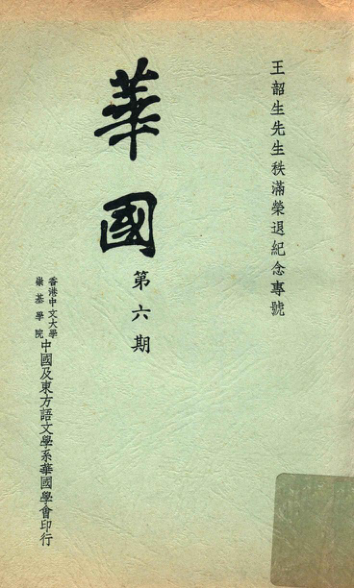 王韶生先生秩滿榮退紀念專號
華國
第六期
香港中文大學
崇基學院
中國及東方語文學系華國學會印行